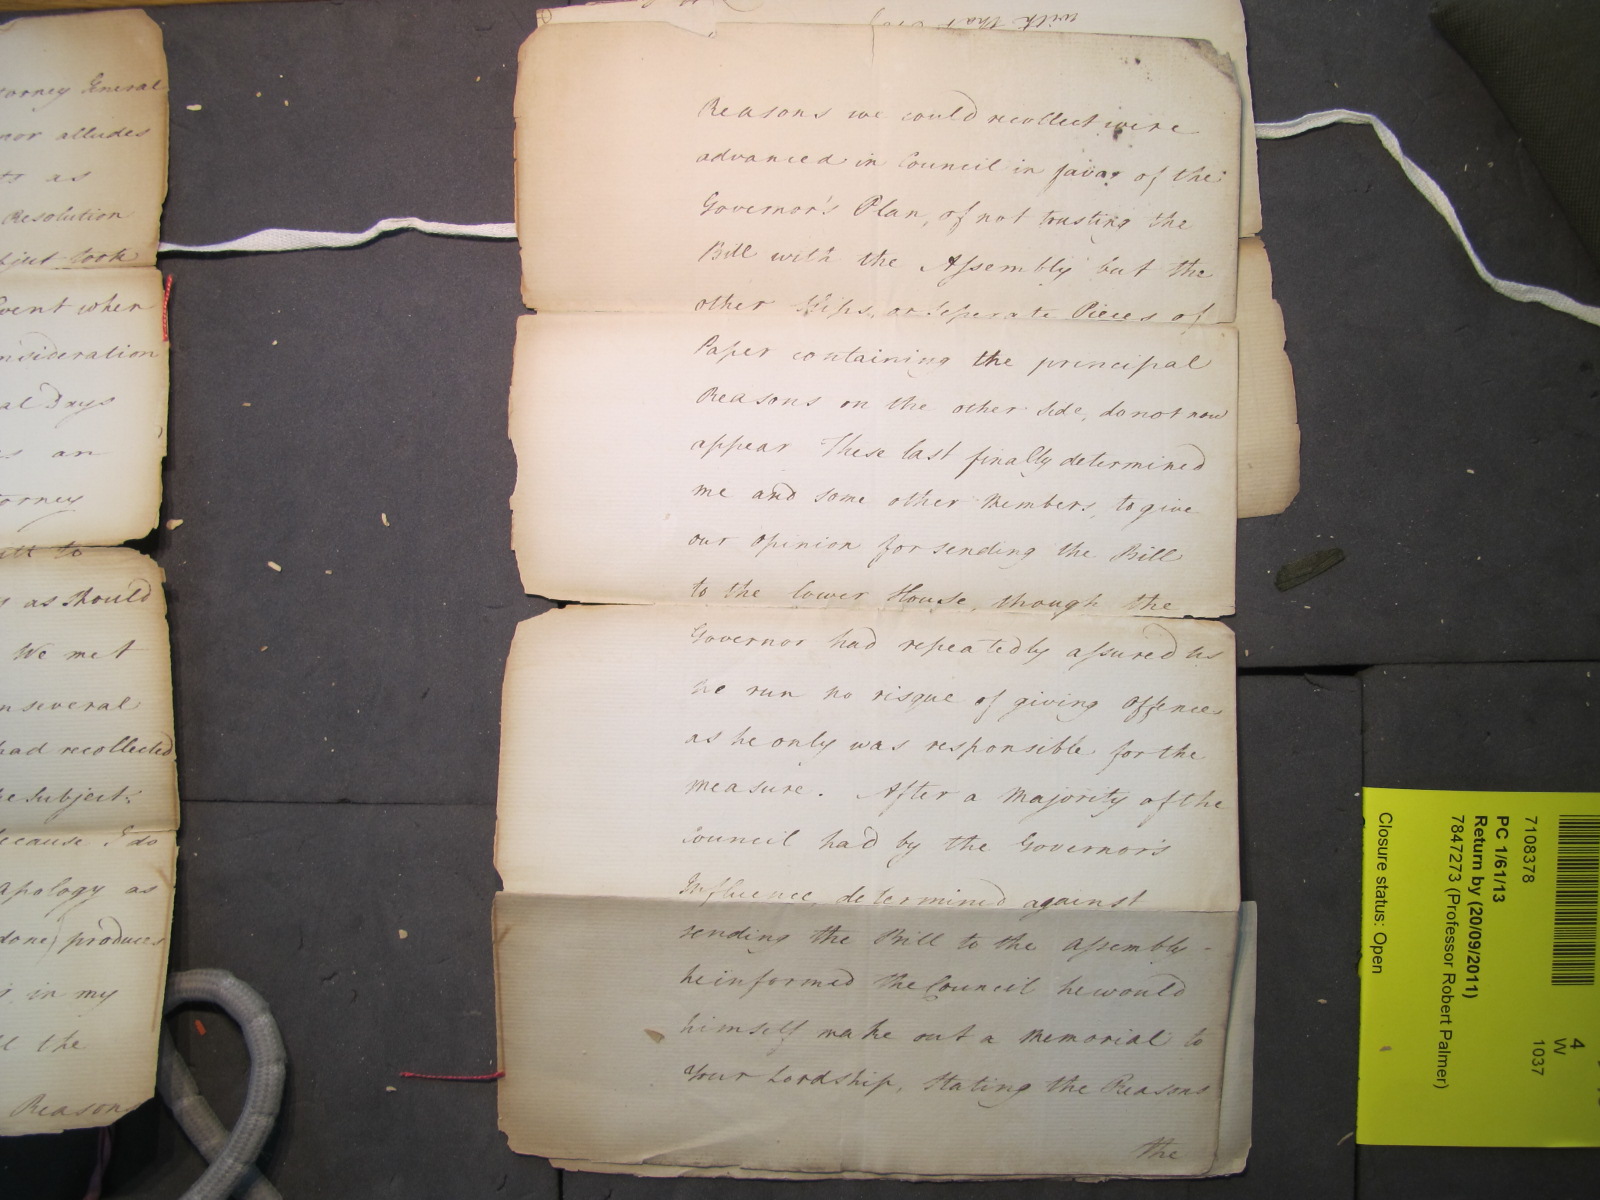 with that
torney General
nor alludes
ts as
Resolution
bject took
vent when
nsideration
al Days
s an
torney
ill to
s as Should
We met
n several
had recollected
he Subject.
because I do
Apology as
done) produces
in my
ll the
Reasons
Reasons we could recollect were
advanced in Council in favor of the
Governor's Plan, of not trusting the
Bill with the Assembly but the
other Slips, or Seperate Pieces of
Paper containing the principal
Reasons on the other Side, do not now
appear These last finally determined
me and some other Members, to give
our opinion for sending the Bill
to the lower House, though the
Governor had repeatedly assured us
we run no risque of giving Offence
as he only was responsible for the
measure. After a Majority of the
Council had by the Governor's
Influence, determined against
sending the Bill to the Assembly -
he informed the Council he would
himself make out a Memorial to
Your Lordship, Stating the Reasons
the
7108378
PC 1/61/13
Return by (20/09/2011)
7847273 (Professor Robert Palmer)
Closure status: Open
4
W
1037